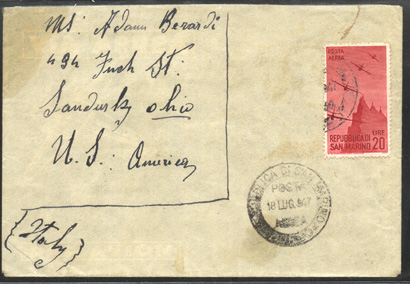 Ms: Adamo Berardi
494 Tuch St:
Sandusky Ohio
U. S: America
{Italy}
POSTA
AEREA
LIRE
REPUBBLICA DI
SAN MARINO 20
REPUBBLICA DI SAN MARINO
POSTA
18 LUG. 947
AEREA